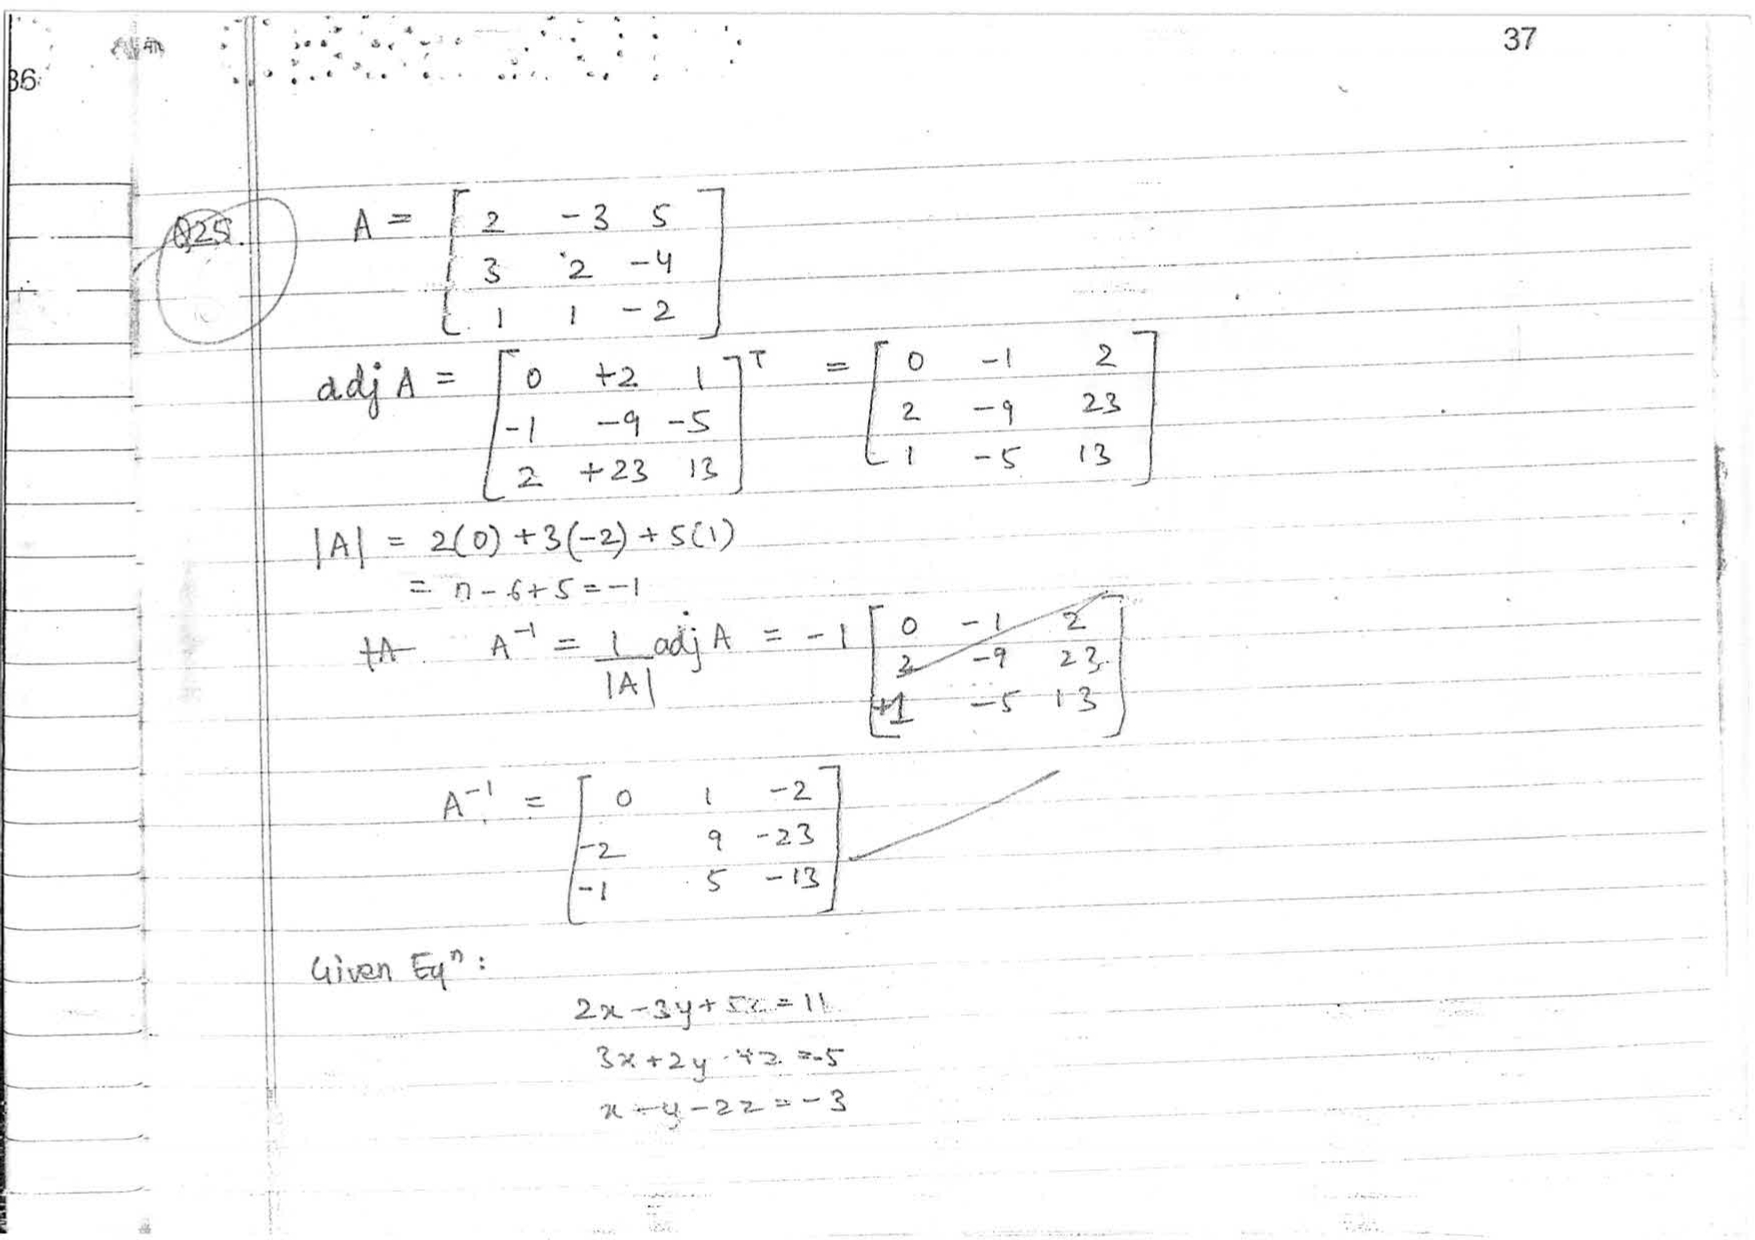 37
36
Q25.
A = [ 2 -3 5
3 2 -4
1 1 -2 ]
adj A = [ 0 +2 1
-1 -9 -5
2 +23 13 ]ᵀ = [ 0 -1 2
2 -9 23
1 -5 13 ]
|A| = 2(0) + 3(-2) + 5(1)
= 0 - 6 + 5 = -1
A⁻¹ = 1/|A| adj A = -1 [ 0 -1 2
2 -9 23
+1 -5 13 ]
A⁻¹ = [ 0 1 -2
-2 9 -23
-1 5 -13 ]
Given Eqⁿ :
2x - 3y + 5z = 11
3x + 2y - 4z = -5
x + y - 2z = -3